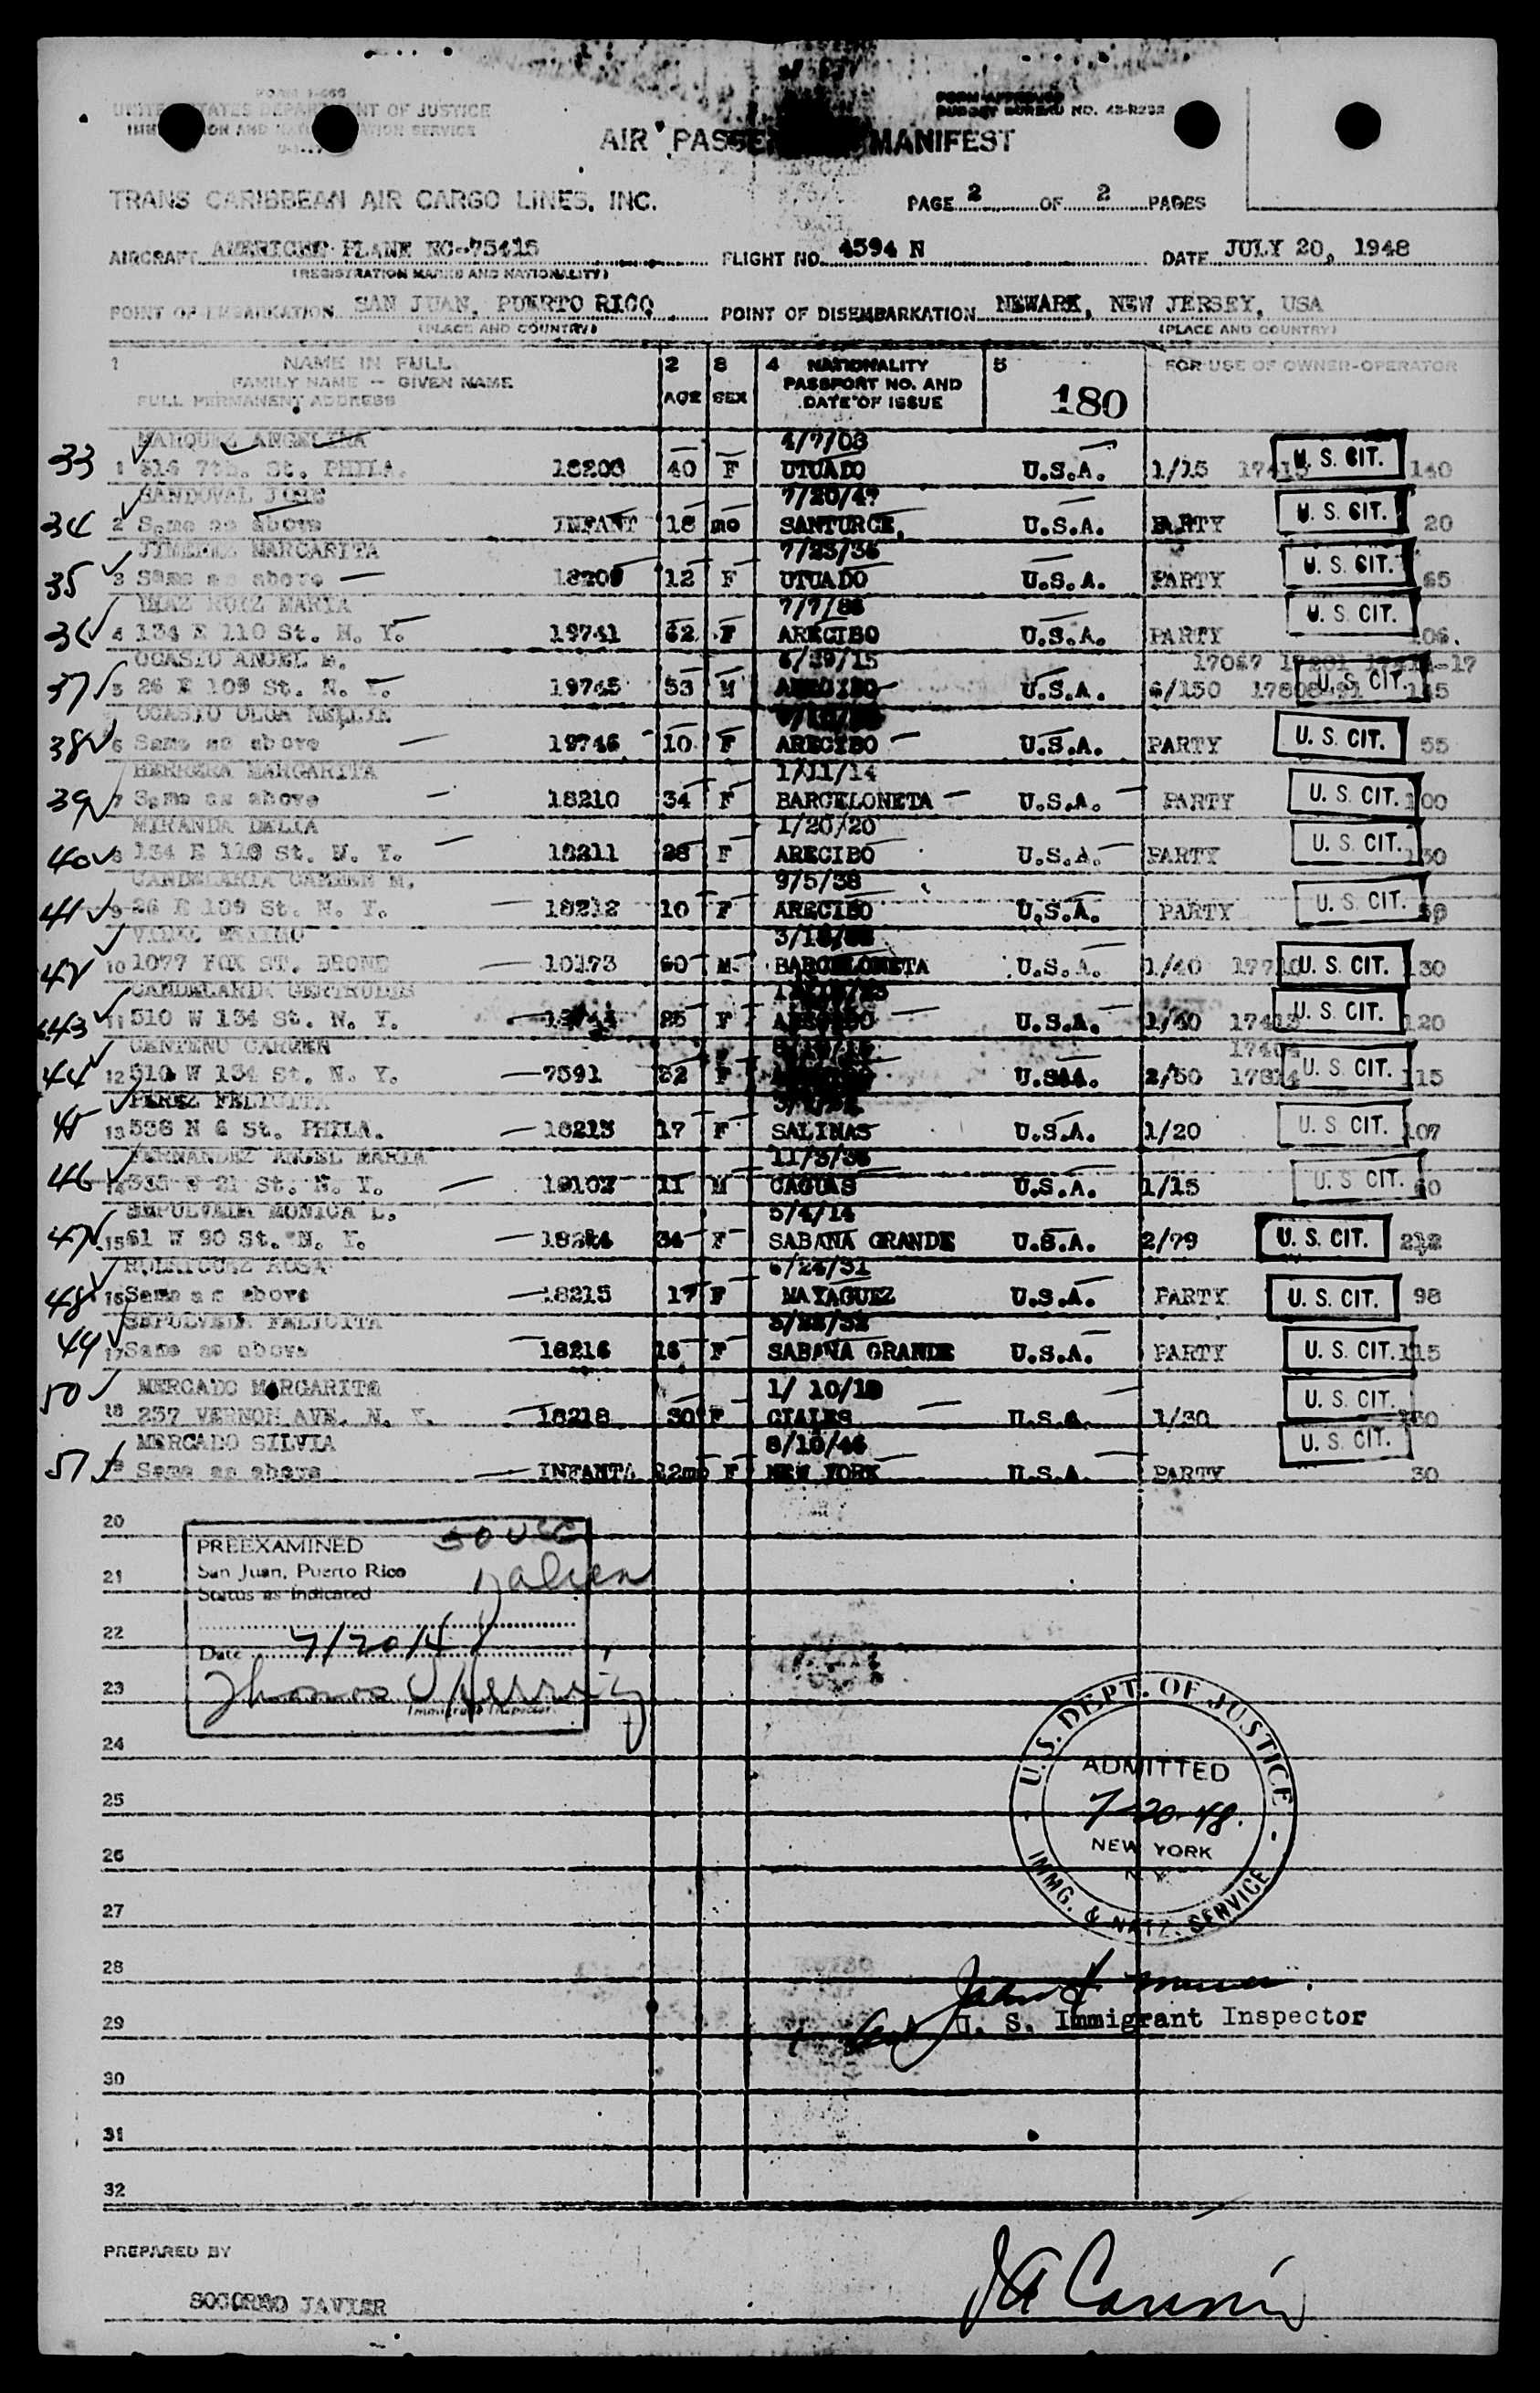 FORM I-466
UNITED STATES DEPARTMENT OF JUSTICE
IMMIGRATION AND NATURALIZATION SERVICE
FORM APPROVED
BUDGET BUREAU NO. 43-R232
AIR PASSENGER MANIFEST
TRANS CARIBBEAN AIR CARGO LINES, INC.
PAGE 2 OF 2 PAGES
AIRCRAFT AMERICEE PLANE NC-75415 FLIGHT NO. 4594 N DATE JULY 20, 1948
(REGISTRATION MARKS AND NATIONALITY)
POINT OF EMBARKATION SAN JUAN, PUERTO RICO POINT OF DISEMBARKATION NEWARK, NEW JERSEY, USA
(PLACE AND COUNTRY) (PLACE AND COUNTRY)
1 NAME IN FULL 2 3 4 NATIONALITY 5 FOR USE OF OWNER-OPERATOR
FAMILY NAME — GIVEN NAME AGE SEX PASSPORT NO. AND 180
FULL PERMANENT ADDRESS DATE OF ISSUE
MARQUEZ ANGELINA 4/7/08
33 1 816 7th. St. PHILA. 18208 40 F UTUADO U.S.A. 1/15 U. S. CIT. 140
SANDOVAL JOSE 7/20/47
34 2 Same as above INFANT 18 mo SANTURCE, U.S.A. PARTY U. S. CIT. 20
JIMENEZ MARGARITA 7/23/36
35 3 Same as above 18209 12 F UTUADO U.S.A. PARTY U. S. CIT. 65
RUIZ MARIA 7/7/86
36 4 134 E 110 St. N. Y. 19741 62 F ARECIBO U.S.A. PARTY U. S. CIT. 106.
OCASIO ANGEL M. 6/29/15 17067
37 5 26 E 109 St. N. Y. 19745 53 M ARECIBO U.S.A. 6/150 U. S. CIT.
OCASIO OLGA NELLIE
38 6 Same as above 19746 10 F ARECIBO U.S.A. PARTY U. S. CIT. 55
HERRERA MARGARITA 1/11/14
39 7 Same as above 18210 34 F BARCELONETA U.S.A. PARTY U. S. CIT. 100
MIRANDA DELIA 1/20/20
40 8 134 E 110 St. N. Y. 18211 28 F ARECIBO U.S.A. PARTY U. S. CIT.
CANDELARIA CARMEN M. 9/5/38
41 9 26 E 109 St. N. Y. 18212 10 F ARECIBO U.S.A. PARTY U. S. CIT.
VELEZ
42 10 1077 FOX ST. BRONX 10173 60 M BARCELONETA U.S.A. 1/40 U. S. CIT. 130
CANDELARIA GERTRUDIS
43 11 510 W 134 St. N. Y. 25 F ARECIBO U.S.A. 1/30 U. S. CIT. 120
CENTENO CARMEN
44 12 510 W 134 St. N. Y. 7591 32 F U.SAA. 2/50 17814 U. S. CIT. 115
PEREZ FELICITA
45 13 538 N 6 St. PHILA. 18213 17 F SALINAS U.S.A. 1/20 U. S. CIT. 107
FERNANDEZ ANGEL MARIA 11/3/36
46 14 E 21 St. N. Y. 11 M CAGUAS U.S.A. 1/15 U. S. CIT. 60
SEPULVEDA MONICA L. 5/4/14
47 15 61 W 90 St. N. Y. 34 F SABANA GRANDE U.S.A. 2/79 U. S. CIT. 212
RODRIGUEZ ROSA 6/24/31
48 16 Same as above 18215 17 F MAYAGUEZ U.S.A. PARTY U. S. CIT. 98
SEPULVEDA FELICITA 5/22/32
49 17 Same as above 18216 16 F SABANA GRANDE U.S.A. PARTY U. S. CIT. 115
MERCADO MARGARITA 1/ 10/18
50 18 237 VERNON AVE. N. Y. 18218 30 F CIALES U.S.A. 1/30 U. S. CIT. 130
MERCADO SILVIA 8/10/46
51 19 Same as above INFANTA 22mo F NEW YORK U.S.A. PARTY U. S. CIT. 30
20
PREEXAMINED 50 USC
San Juan, Puerto Rico 1 alien
21
Status as indicated
22
Date 7/20/48
23
Thomas J Herring
Immigrant Inspector
24
U.S. DEPT. OF JUSTICE
ADMITTED
25
7-20-48.
NEW YORK
N. Y.
26
IMMG. & NATZ. SERVICE
27
28
John
29
U. S. Immigrant Inspector
30
31
32
PREPARED BY
SOCORRO JAVIER